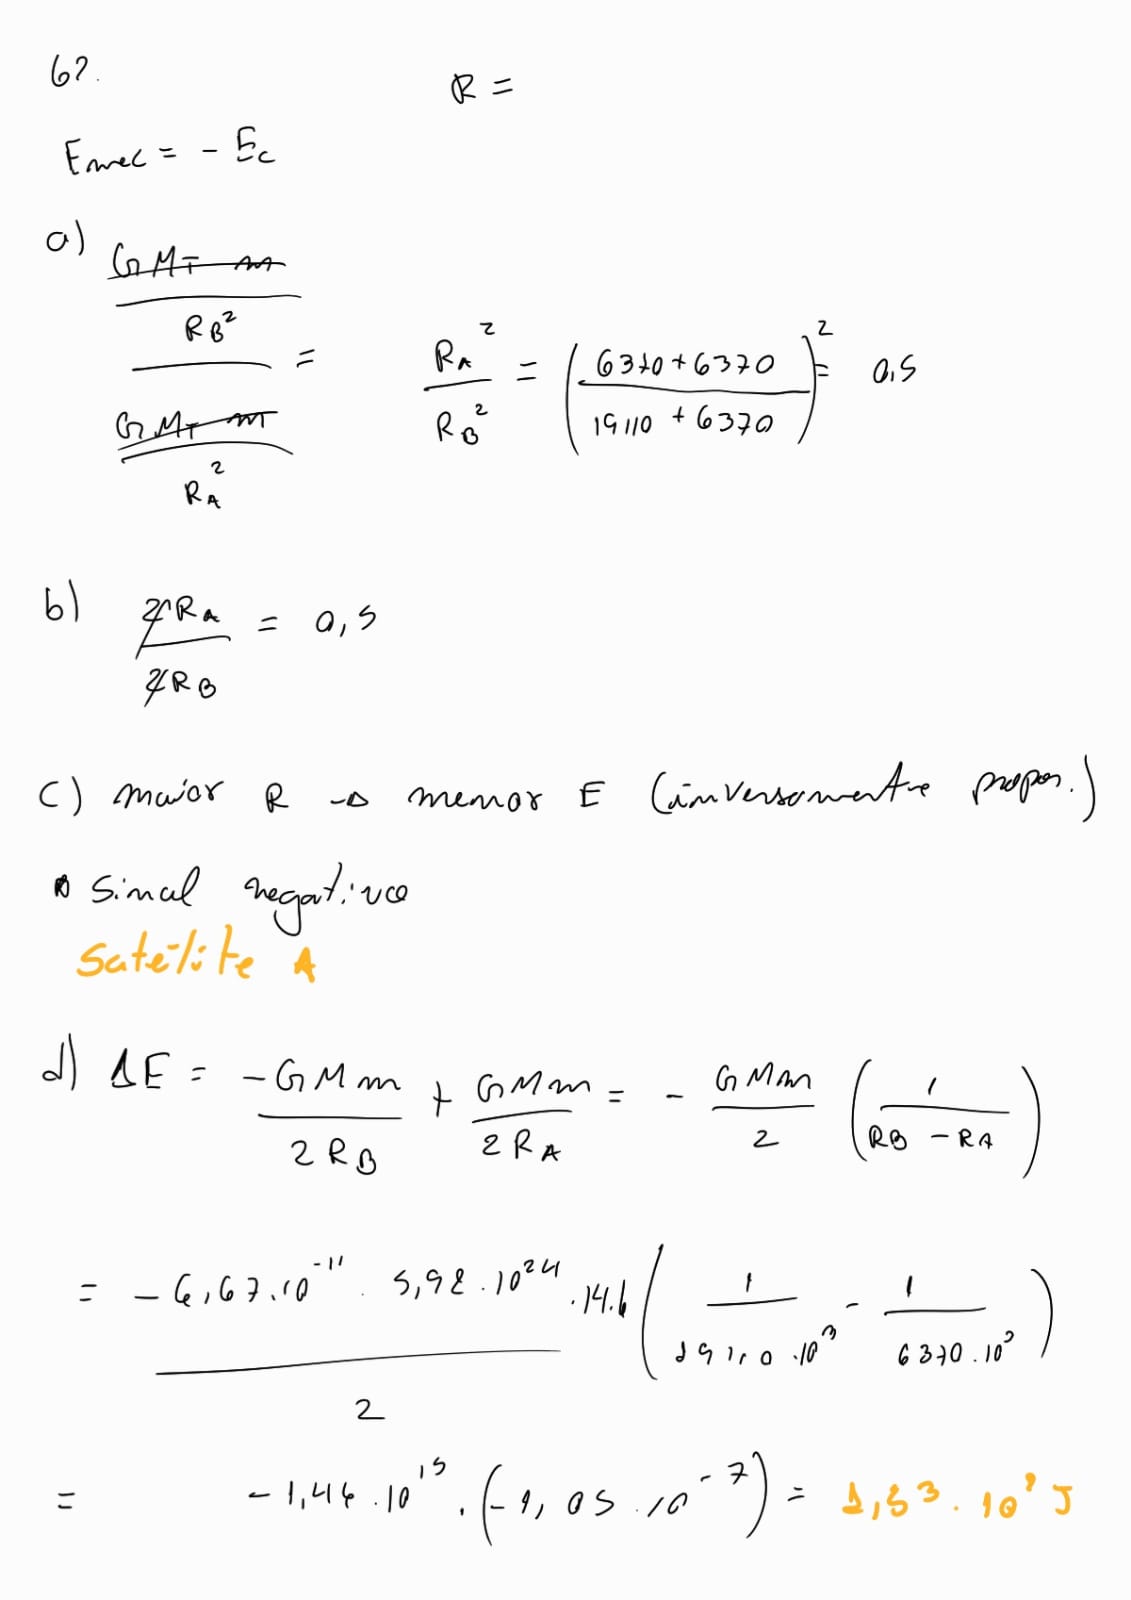 62.
R =
Emec = - Ec
a) GMT m / RB² / GMT m / RA² = RA² / RB² = ( 6370 + 6370 / 19110 + 6370 )² = 0,5
b) 2RA / 2RB = 0,5
c) maior R → menor E (inversamente propor.)
sinal negativo
Satélite A
d) ΔE = -GMm / 2RB + GMm / 2RA = - GMm / 2 ( 1 / RB - RA )
= - 6,67.10⁻¹¹ . 5,98.10²⁴ .14.6 / 2 ( 1 / 19110.10³ - 1 / 6370.10³ )
= - 1,46.10¹⁵ . ( - 1,05.10⁻⁷ ) = 1,53.10⁸ J